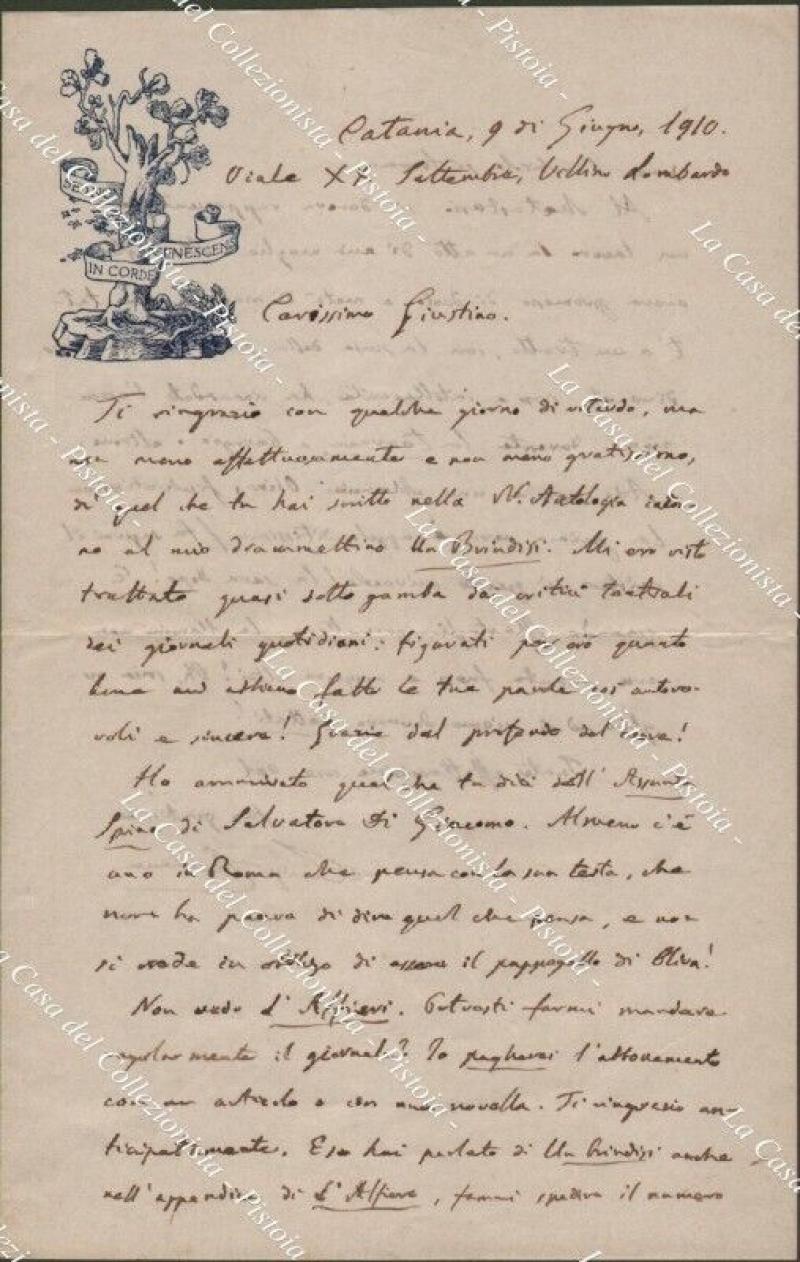 SE
IN CORDE
NESCENS
Catania, 9 di Giugno, 1910.
Viale XX Settembre, Villino Lombardo
Carissimo Giustino.
Ti ringrazio con qualche giorno di ritardo, ma
non meno affettuosamente e non meno gratissimo,
di quel che tu hai scritto nella N. Antologia intor-
no al mio drammettino Un Brindisi. Mi ero visto
trattato quasi sotto gamba dai critici teatrali
dei giornali quotidiani: figurati perciò quanto
bene mi abbiano fatto le tue parole così autore-
voli e sincere! Grazie dal profondo del cuore!
Ho ammirato quel che tu dici dell' Assunta
Spina di Salvatore Di Giacomo. Almeno c'è
uno in Roma che pensa con la sua testa, che
non ha paura di dire quel che pensa, e non
si crede in obbligo di essere il pappagallo di Oliva!
Non vedo L'Alfiere. Potresti farmi mandare
regolarmente il giornale? Io pagherei l'abbonamento
con un articolo o con una novella. Ti ringrazio an-
ticipatamente. E se hai parlato di Un brindisi anche
nell'appendice di L'Alfiere, fammi spedire il numero
La Casa del Collezionista - Pistoia -